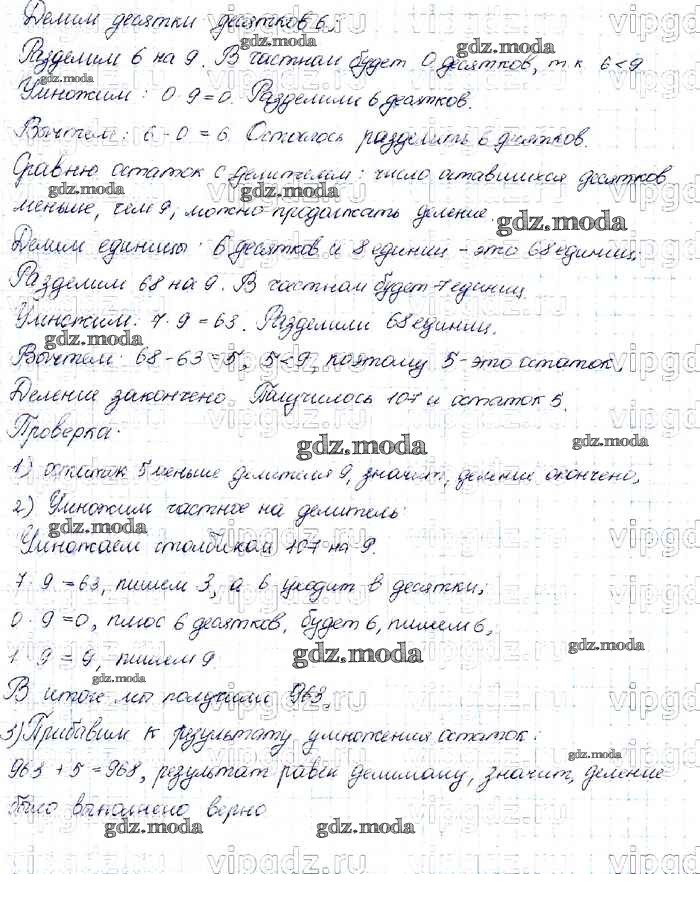 Делим десятки десятков 6.
Разделим 6 на 9. В частном будет 0 десятков, т.к 6<9
Умножим: 0·9=0. Разделили 6 десятков.
Вычтем: 6-0=6. Осталось разделить 6 десятков.
Сравню остаток с делителем: число оставшихся десятков
меньше, чем 9, можно продолжать деление.
Делим единицы: 6 десятков и 8 единиц - это 68 единиц.
Разделим 68 на 9. В частном будет 7 единиц
Умножим: 7·9=63. Разделили 68 единиц.
Вычтем: 68-63=5, 5<9, поэтому 5-это остаток.
Деление закончено. Получилось 107 и остаток 5.
Проверка.
1) остаток 5 меньше делителя 9, значит, деление окончено,
2) Умножим частное на делитель.
Умножаем столбиком 107 на 9.
7·9=63, пишем 3, а 6 уходит в десятки;
0·9=0, плюс 6 десятков, будет 6, пишем 6,
1·9=9, пишем 9
В итоге мы получили 963.
3) Прибавим к результату умножения остаток:
963+5=968, результат равен делимому, значит, деление
было выполнено верно
gdz.moda
vipgdz.ru